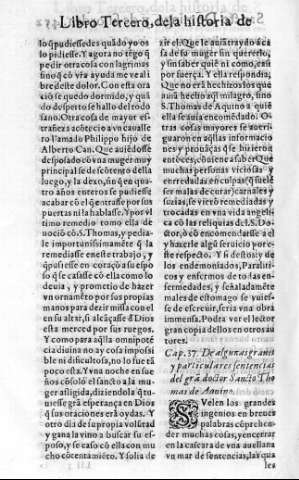 Libro Tercero, de la historia de
lo q̃ pudiesse des quãdo yo os
lo pidiesse. Y agora no tẽgo q̃
pedir otra cosa con lagrimas
sino q̃ cõ vr̃a ayuda me vea li
bre deste dolor. Con esta ora
ciõ se quedo dormido, y quã
do desperto se hallo del todo
sano. Otra cosa de mayor es-
trañeza acõtecio a vn cauall̃e
ro llamado Philippo hijo de
Alberto Can. Que auiẽdosse
desposado cõ vna muger muy
principal se descõtento della
luego, y la dexo, sin q̃ en quatro
años enteros se pudiesse
acabar cõ el q̃ entrasse por sus
puertas ni la hablasse. Y por vl
timo remedio tomo ella de
uociõ cõ S. Thomas, y pedia
le importunissimamẽte q̃ la
remediasse en este trabajo, y
q̃ pusiesse en coraçõ a su espo
so q̃ se casasse cõ ella como lo
deuia, y prometio de hazer
vn ornamẽto por sus propias
manos para dezir missa con el
en su altar, si alcãçasse d̃ Dios
esta merced por sus ruegos.
Y como para aq̃lla omnipotẽ
cia diuina no ay cosa impossi
ble ni dificultosa, no lo fue tã
poco esta. Y vna noche en sue
ños cõsolo el sancto a la mu
ger afligida, diziendola q̃ tu
uiesse grã esperança en Dios
q̃ sus oraciones erã oydas. Y
otro dia de su propia volũtad
y gana la vino a buscar su es-
poso, y se caso cõ ella con mu
cho cõtentamiẽto. Y solia de
zir el. Que le auia traydo a ca
sa de su muger sin quererlo,
y sin saber quiẽ ni como, casi
por fuerça. Y ella respondia,
Que no era hechizeria, sino
S. Thomas de Aquino a quiẽ
ella se auia encomẽdado. O
tras cosas mayores se aueri-
guaron en aq̃llas informacio
nes y prouãças q̃ se hizieron
entõces, cõuiene a saber Que
muchas personas viciosas y
enrredadas en culpas q̃ suelẽ
ser malas de curar, carnales y
suzias, se vierõ remediadas y
trocadas en vna vida angeli
ca cõ las reliquias del S. Doc
tor, o cõ encomendarse a el
y hazerle algũ seruicio por es-
te respecto. Y si destos y de
los endemoniados, Paraliti-
cos y enfermos de todas en-
fermedades, y señaladamẽte
males de estomago se vuies-
se de escreuir, seria vna obra
immensa. Podra ver el lector
gran copia dellos en otros au
tores.
Cap. 37. De algunas gracias
y particulares sentencias
del grã doctor Sancto Tho
mas de Aquino.
SVelen los grandes
ingenios en breues
palabras cõprehen-
der muchas cosas, y encerrar
en la cascara de vna auellana
vn mar de sentencias, las qua
les